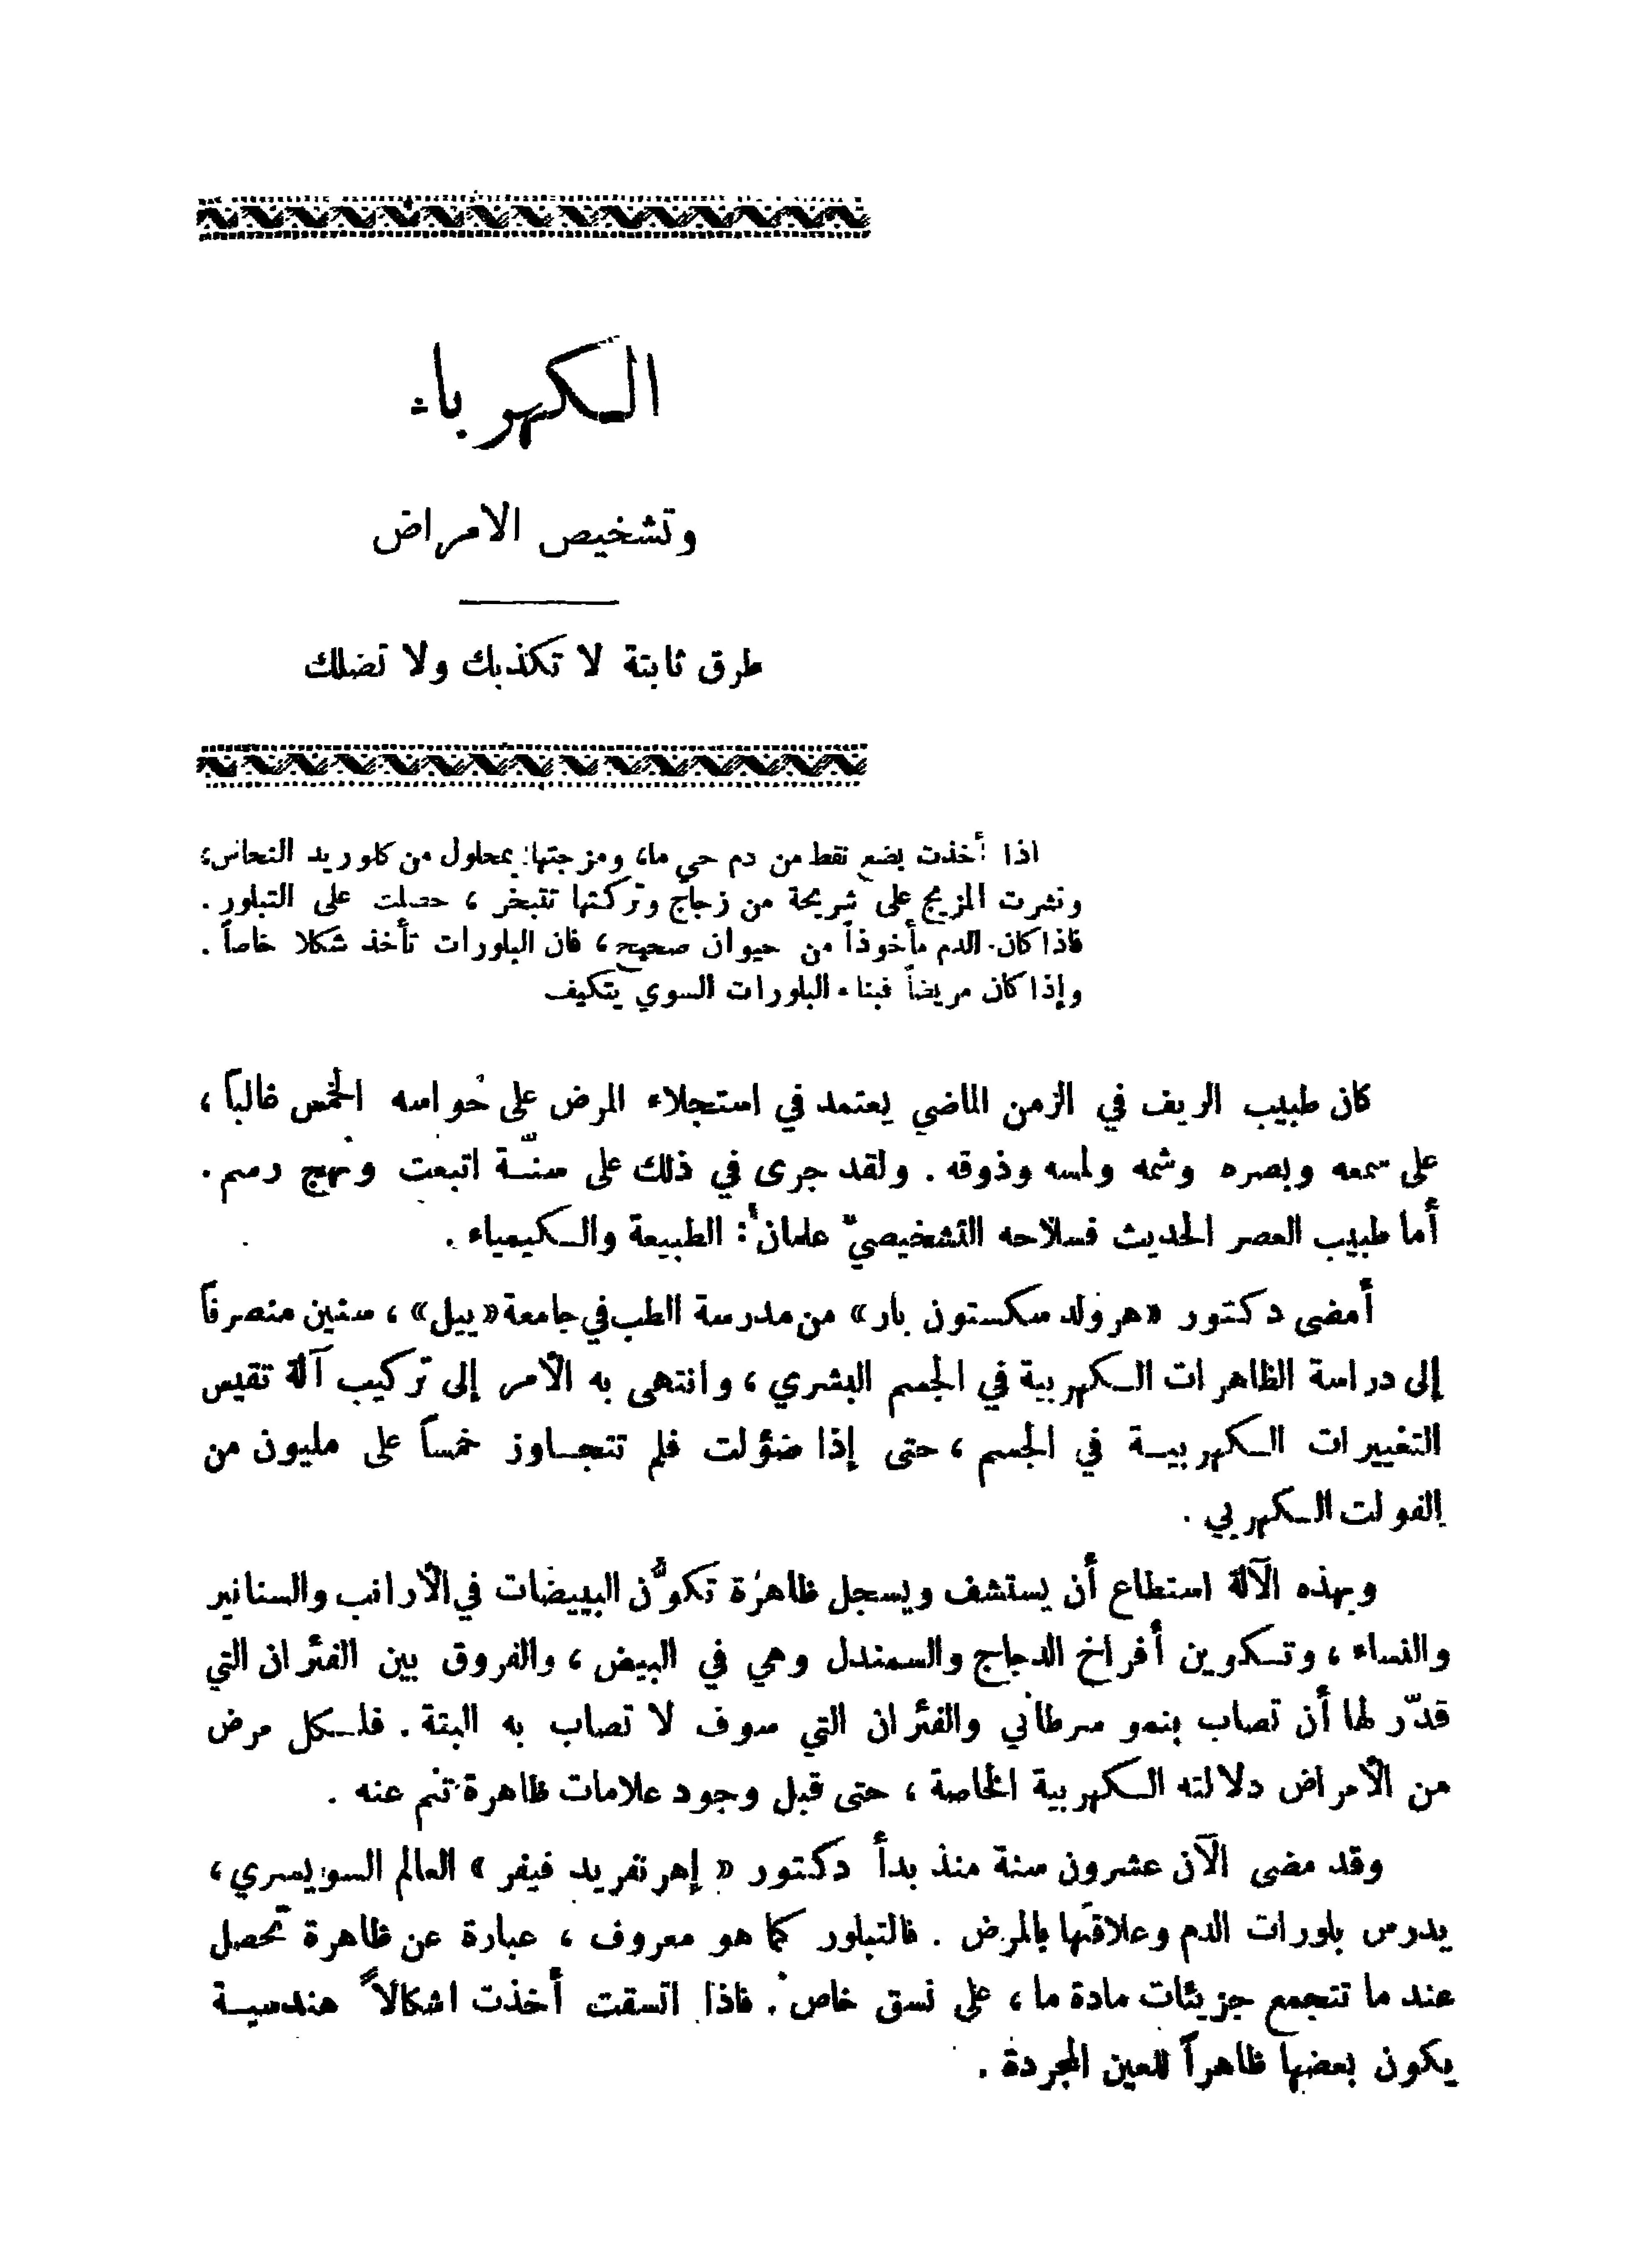 الكهرباء
وتشخيص الامراض
طرق ثابتة لا تكذبك ولا تضلك
اذا أخذت بضع نقط من دم حي ما، ومزجتها بمحلول من كلوريد النحاس،
ونشرت المزيج على شريحة من زجاج وتركتها تتبخر ، حصلت على التبلور .
فاذا كان الدم مأخوذاً من حيوان صحيح ، فان البلورات تأخذ شكلا خاصاً .
وإذا كان مريضاً فبناء البلورات السوي يتكيف
كان طبيب الريف في الزمن الماضي يعتمد في استجلاء المرض على حواسه الخمس غالباً ،
على سمعه وبصره وشمه ولمسه وذوقه . ولقد جرى في ذلك على سنّة اتبعت ونهج رسم .
أما طبيب العصر الحديث فسلاحه التشخيصيّ علمان : الطبيعة والكيمياء .
أمضى دكتور «هرولد سكستون بار» من مدرسة الطب في جامعة «ييل» ، سنين منصرفاً
إلى دراسة الظاهرات الكهربية في الجسم البشري ، وانتهى به الأمر إلى تركيب آلة تقيس
التغييرات الكهربية في الجسم ، حتى إذا ضؤلت فلم تتجاوز خمساً على مليون من
الفولت الكهربي .
وبهذه الآلة استطاع أن يستشف ويسجل ظاهرة تكوُّن البييضات في الأرانب والسنانير
والنساء ، وتكوين أفراخ الدجاج والسمندل وهي في البيض ، والفروق بين الفئران التي
قدّر لها أن تصاب بنمو سرطاني والفئران التي سوف لا تصاب به البتة . فلكل مرض
من الأمراض دلالته الكهربية الخاصة ، حتى قبل وجود علامات ظاهرة تنم عنه .
وقد مضى الآن عشرون سنة منذ بدأ دكتور « إهرنفريد فيفر » العالم السويسري ،
يدرس بلورات الدم وعلاقتها بالمرض . فالتبلور كما هو معروف ، عبارة عن ظاهرة تحصل
عند ما تتجمع جزيئات مادة ما ، على نسق خاص . فاذا اتسقت أخذت اشكالاً هندسية
يكون بعضها ظاهراً للعين المجردة .